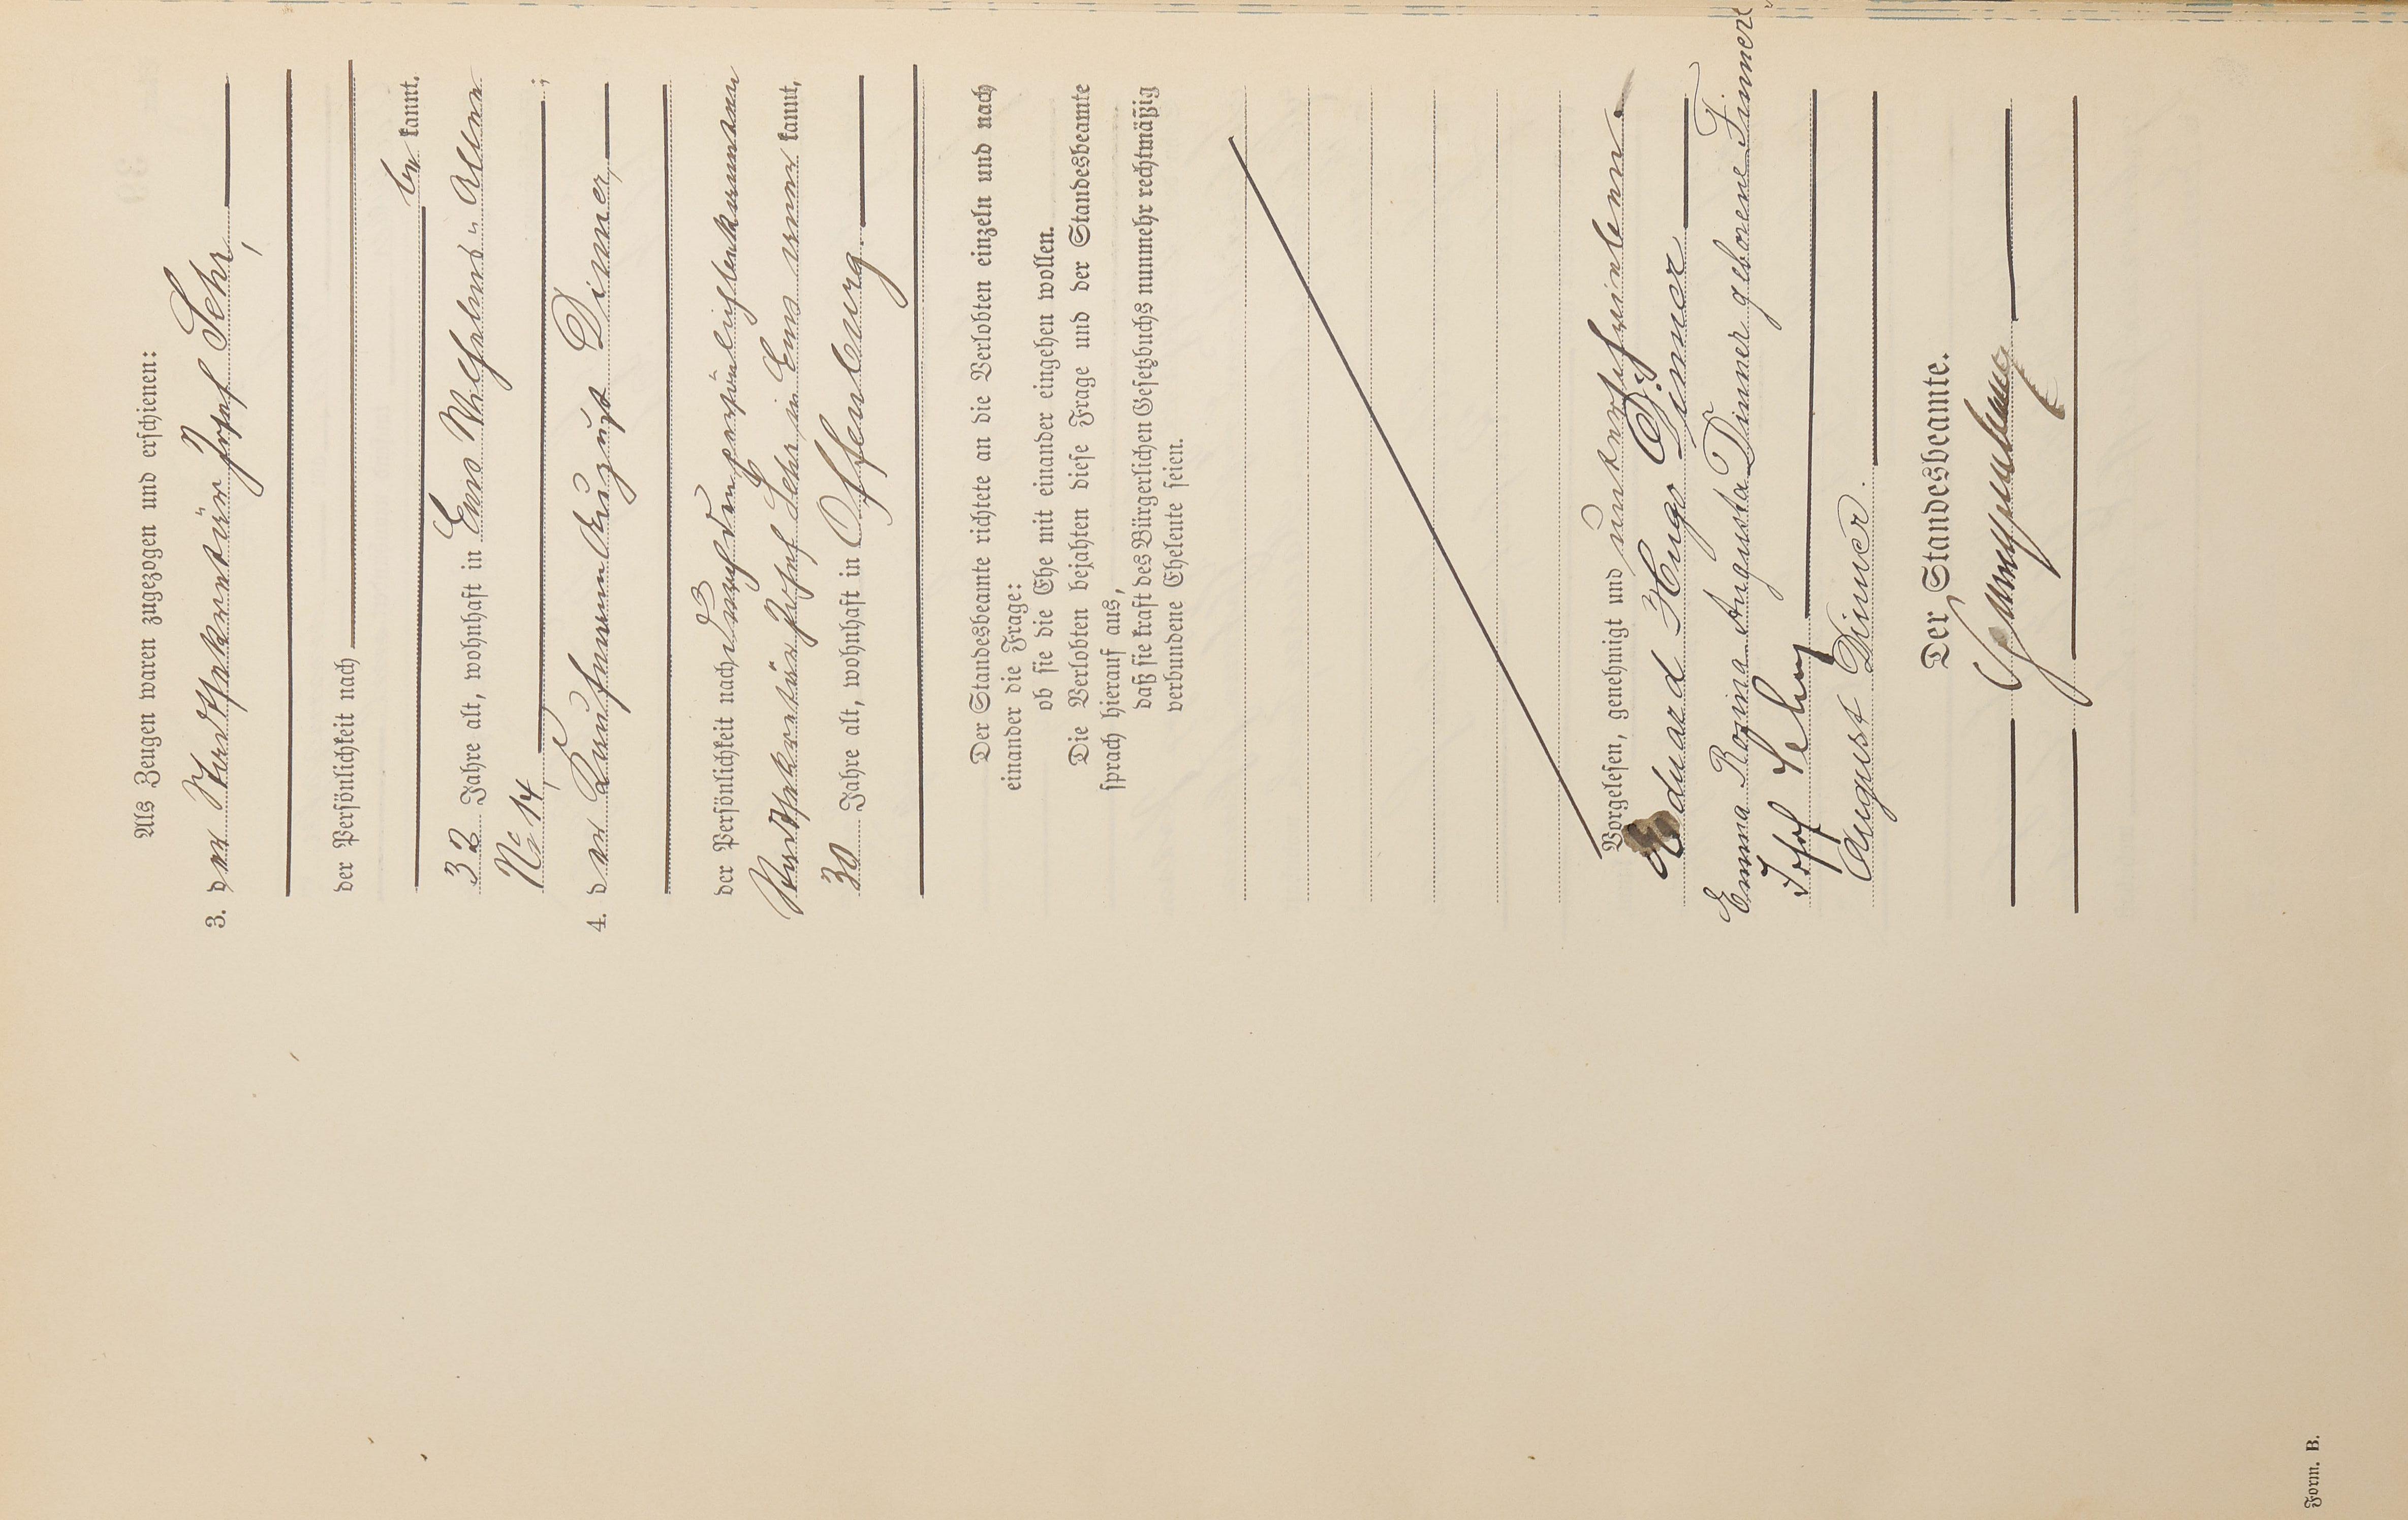 Als Zeugen waren zugezogen und erschienen:
3. der Stadtsekretär Josef Sehr,
der Persönlichkeit nach
be kannt,
32 Jahre alt, wohnhaft in Ems Wilhelms-Allee
No 14, ;
4. der Kaufmann August Dimer,
der Persönlichkeit nach durch den persönlich bekannten
Stadtsekretär Josef Sehr in Ems aner kannt,
30 Jahre alt, wohnhaft in Offenburg.
Der Standesbeamte richtete an die Verlobten einzeln und nach
einander die Frage:
ob sie die Ehe mit einander eingehen wollen.
Die Verlobten bejahten diese Frage und der Standesbeamte
sprach hierauf aus,
daß sie kraft des Bürgerlichen Gesetzbuchs nunmehr rechtmäßig
verbundene Eheleute seien.
Vorgelesen, genehmigt und unterschrieben.
Eduard Hugo Dimer
Emma Rosina Augusta Dimmer geborene
Josef Sehr
August Dimer.
Der Standesbeamte.
Form. B.